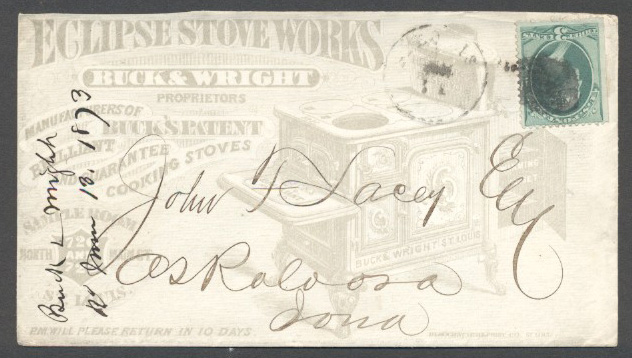 ECLIPSE STOVE WORKS
BUCK & WRIGHT
PROPRIETORS
MANUFACTURERS OF
BUCK'S PATENT
BRILLIANT
AND GUARANTEE
COOKING STOVES
SAMPLE ROOM
720 AND 722
NORTH MAIN
ST. LOUIS.
P.M. WILL PLEASE RETURN IN 10 DAYS.
BUCK & WRIGHT ST. LOUIS
John F Lacey Esq
Oskaloosa
Iowa
Buck & Wright
13. 1873